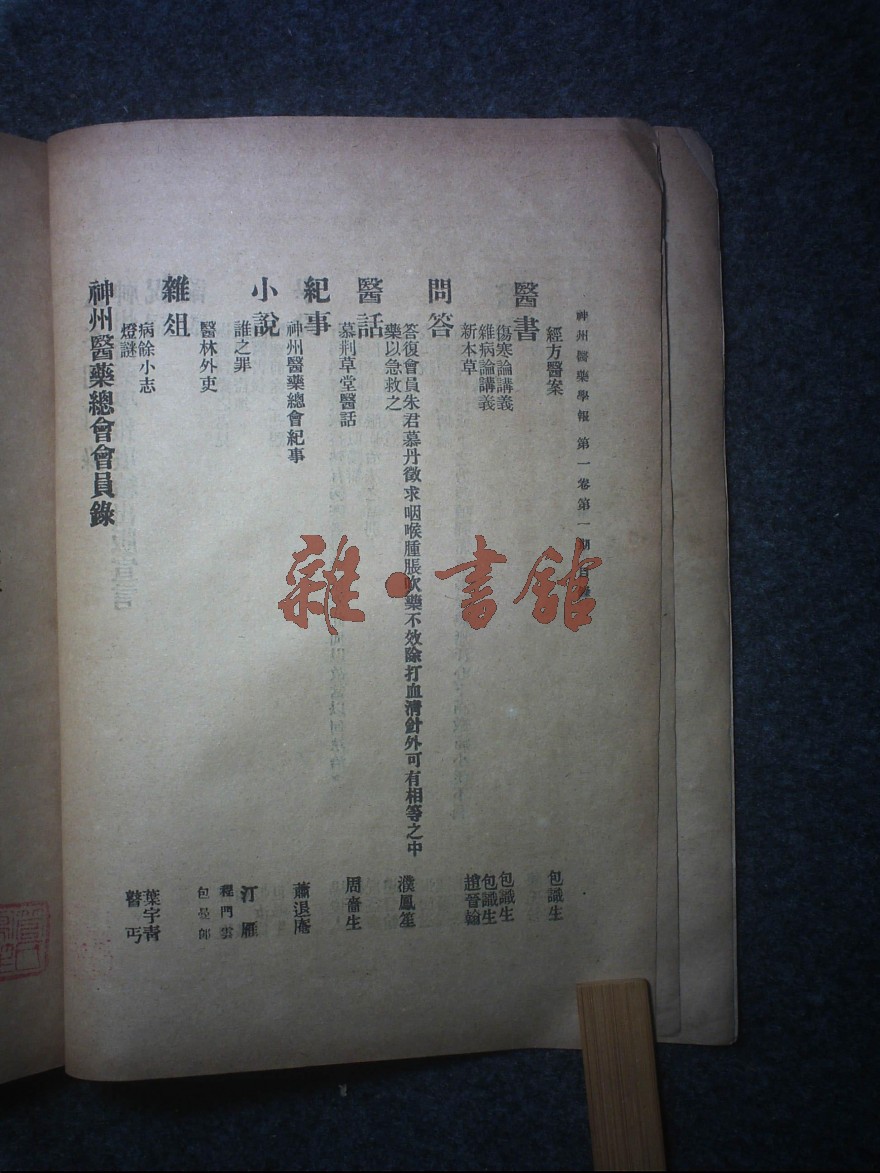 神州醫藥學報 第一卷第一期目錄
經方醫案 包識生
醫書
傷寒論講義 包識生
雜病論講義 包識生
新本草 趙晉翰
問答
答復會員朱君慕丹徵求咽喉腫脹吹藥不效除打血清針外可有相等之中
藥以急救之 濮鳳笙
醫話
慕荆草堂醫話 周嗇生
紀事
神州醫藥總會紀事 蕭退庵
小說
誰之罪 汀雁
醫林外史 程門雪 包
雜俎
病餘小志 葉宇青
燈謎 瞽丐
神州醫藥總會會員錄
雜·書館